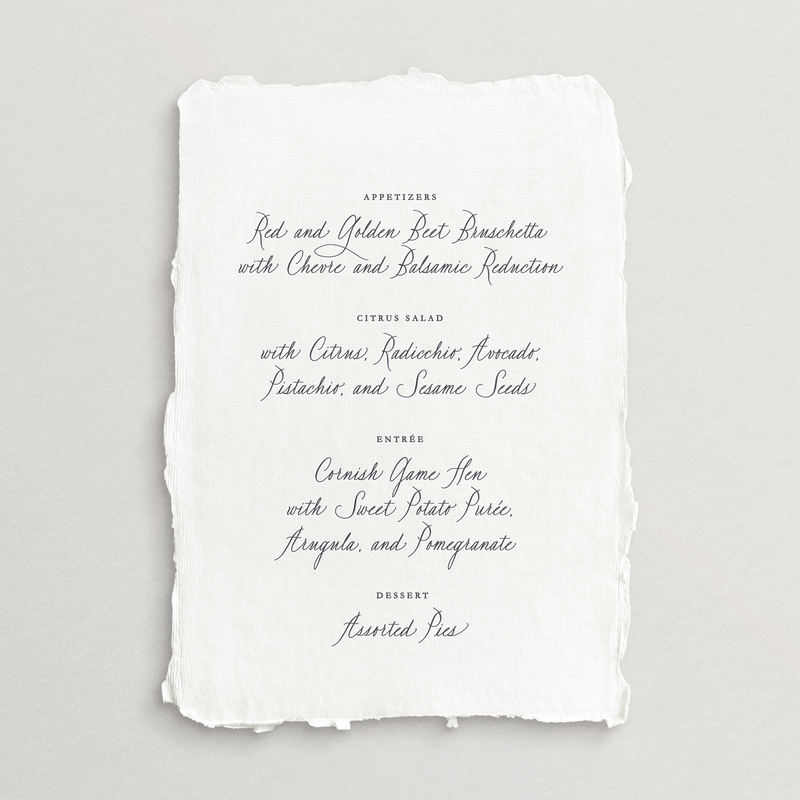 APPETIZERS
Red and Golden Beet Bruschetta
with Chevre and Balsamic Reduction
CITRUS SALAD
with Citrus, Radicchio, Avocado,
Pistachio, and Sesame Seeds
ENTRÉE
Cornish Game Hen
with Sweet Potato Purée,
Arugula, and Pomegranate
DESSERT
Assorted Pies